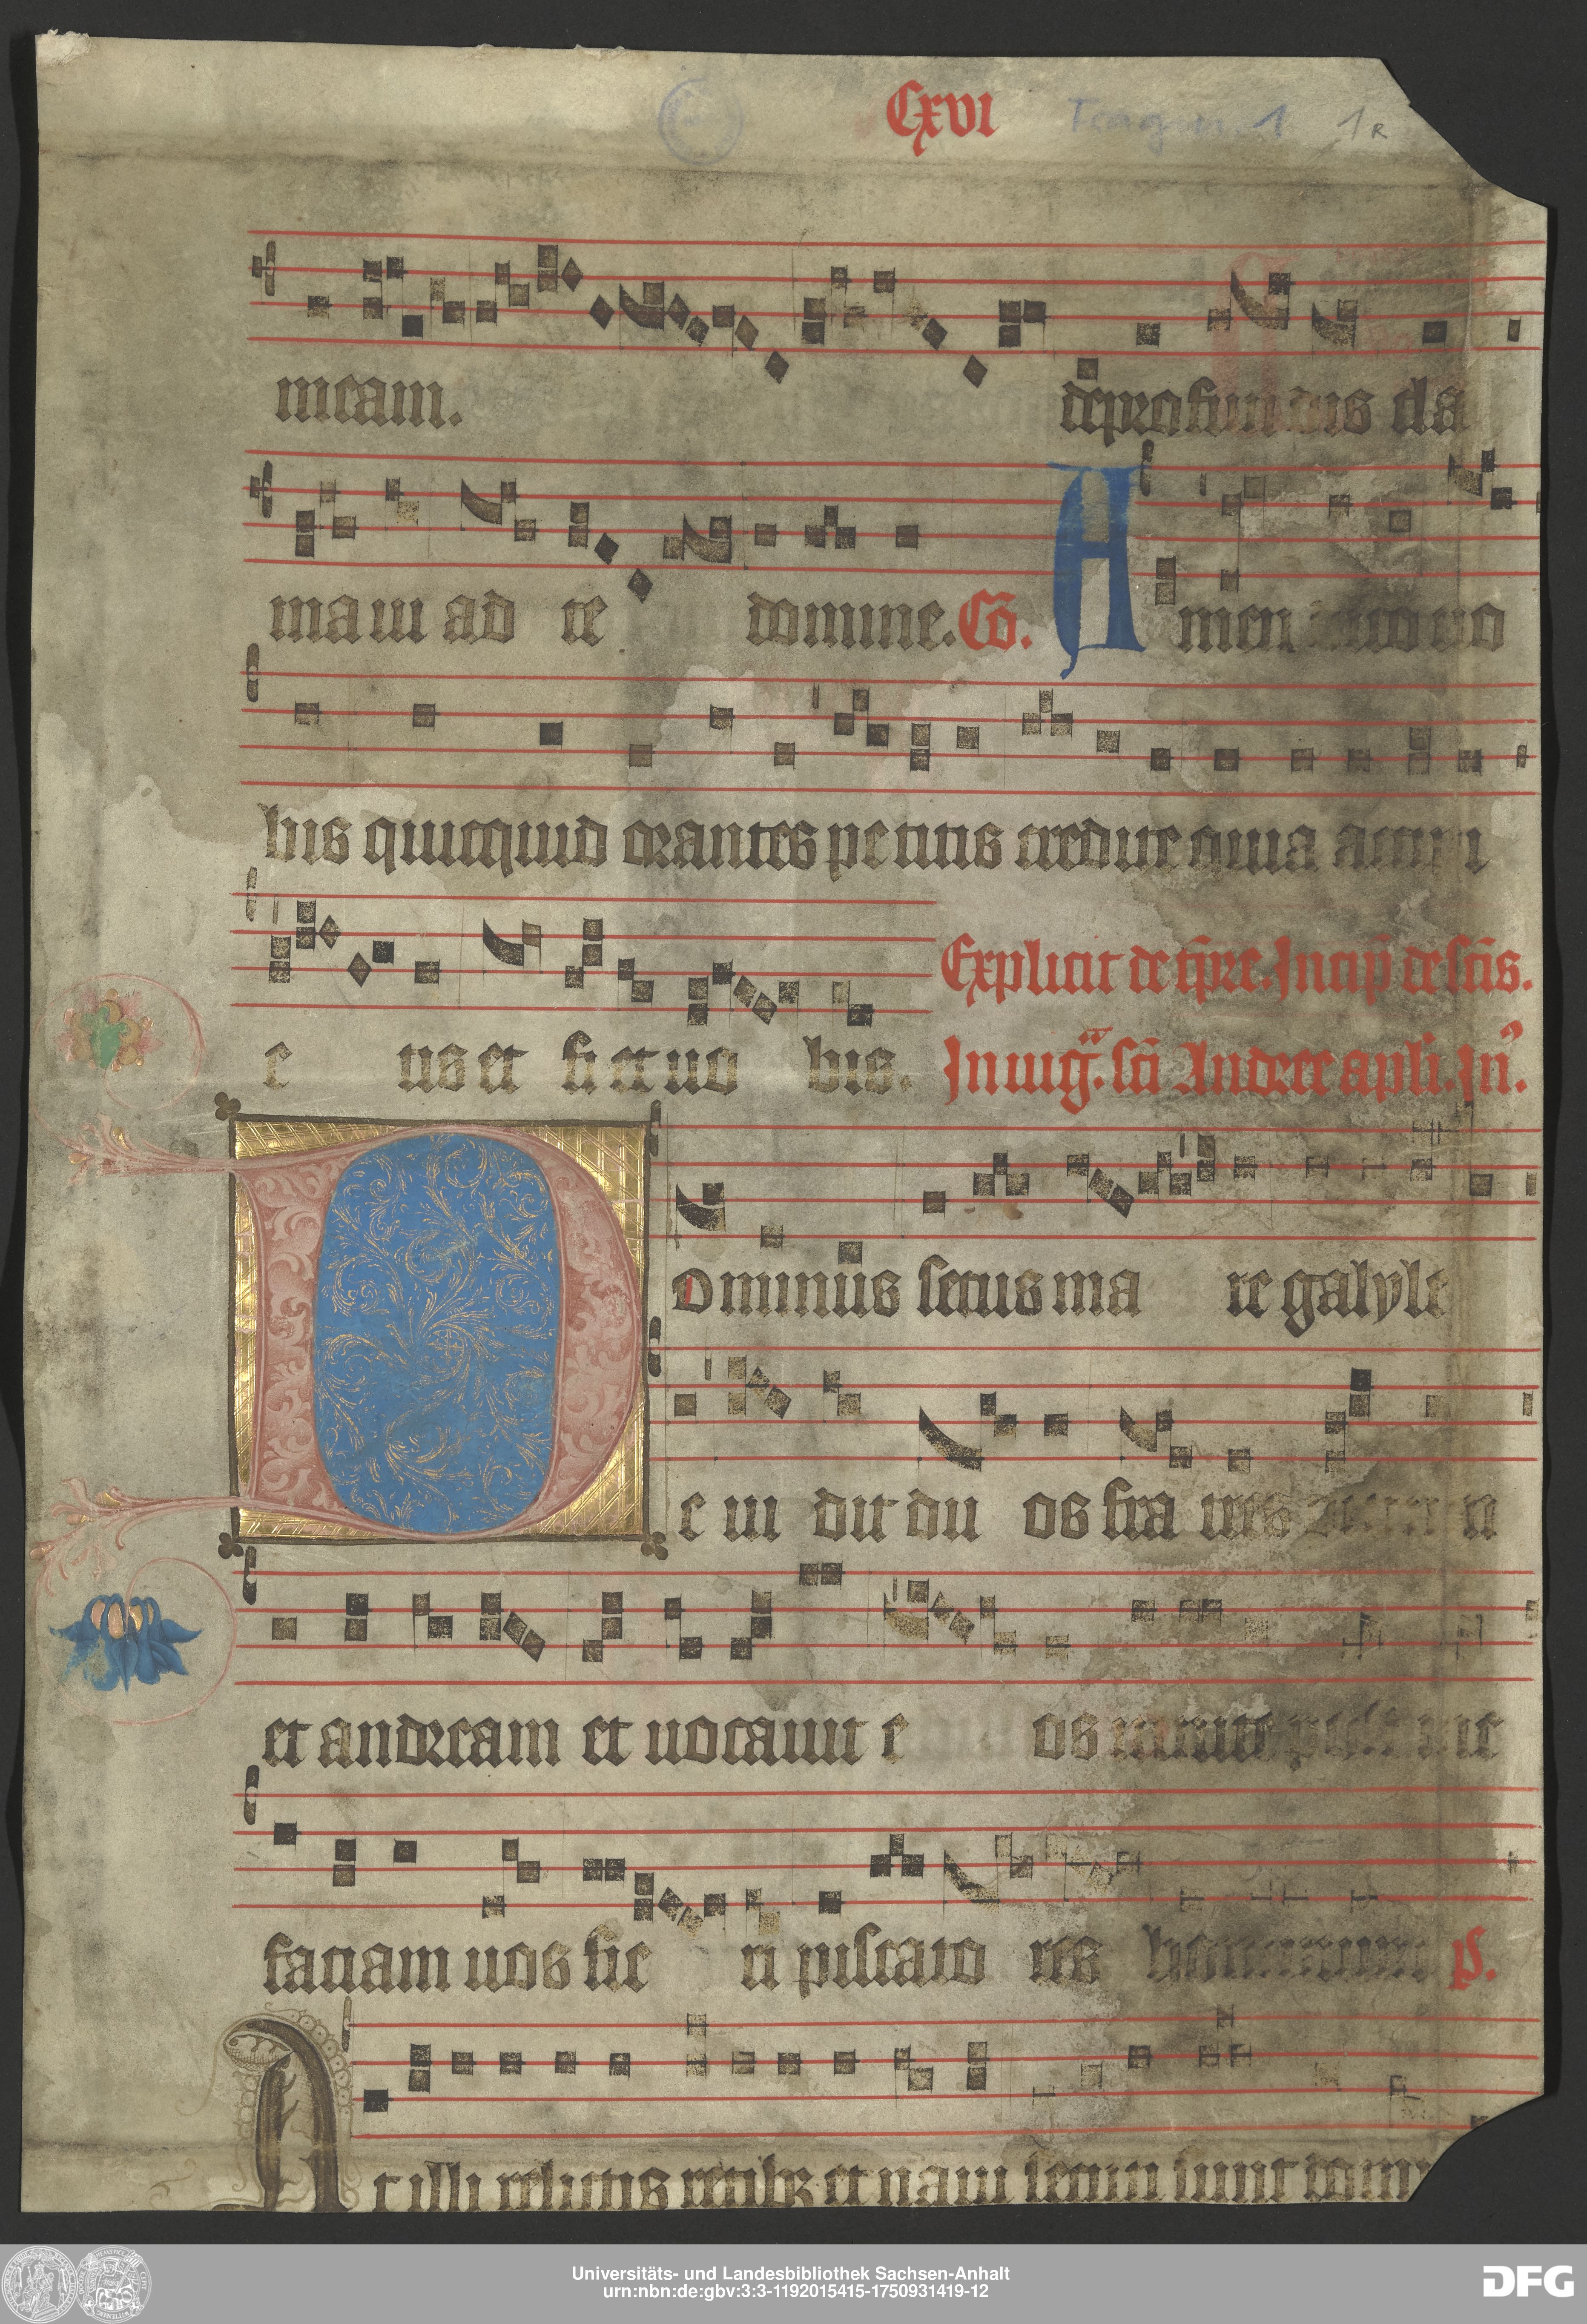 Cxvi Fragm. 1 1r
meam. deprofundis cla
maui ad te domine. Cō. A men dico uo
bis quicquid orantes petitis credite quia accipi
e tis et fi et uo bis.
Explicit de tp̄re. Incip̄ de sc̄is.
In uiḡ. sc̄i Andree apl̄i. In̄.
Dominus secus ma re galyle
e ui dit du os fra tres
et andream et uocauit e os
faciam uos fie ri piscato res hominum ps.
At illi relictis retibz et naui secuti sunt
Universitäts- und Landesbibliothek Sachsen-Anhalt
urn:nbn:de:gbv:3:3-1192015415-1750931419-12
DFG